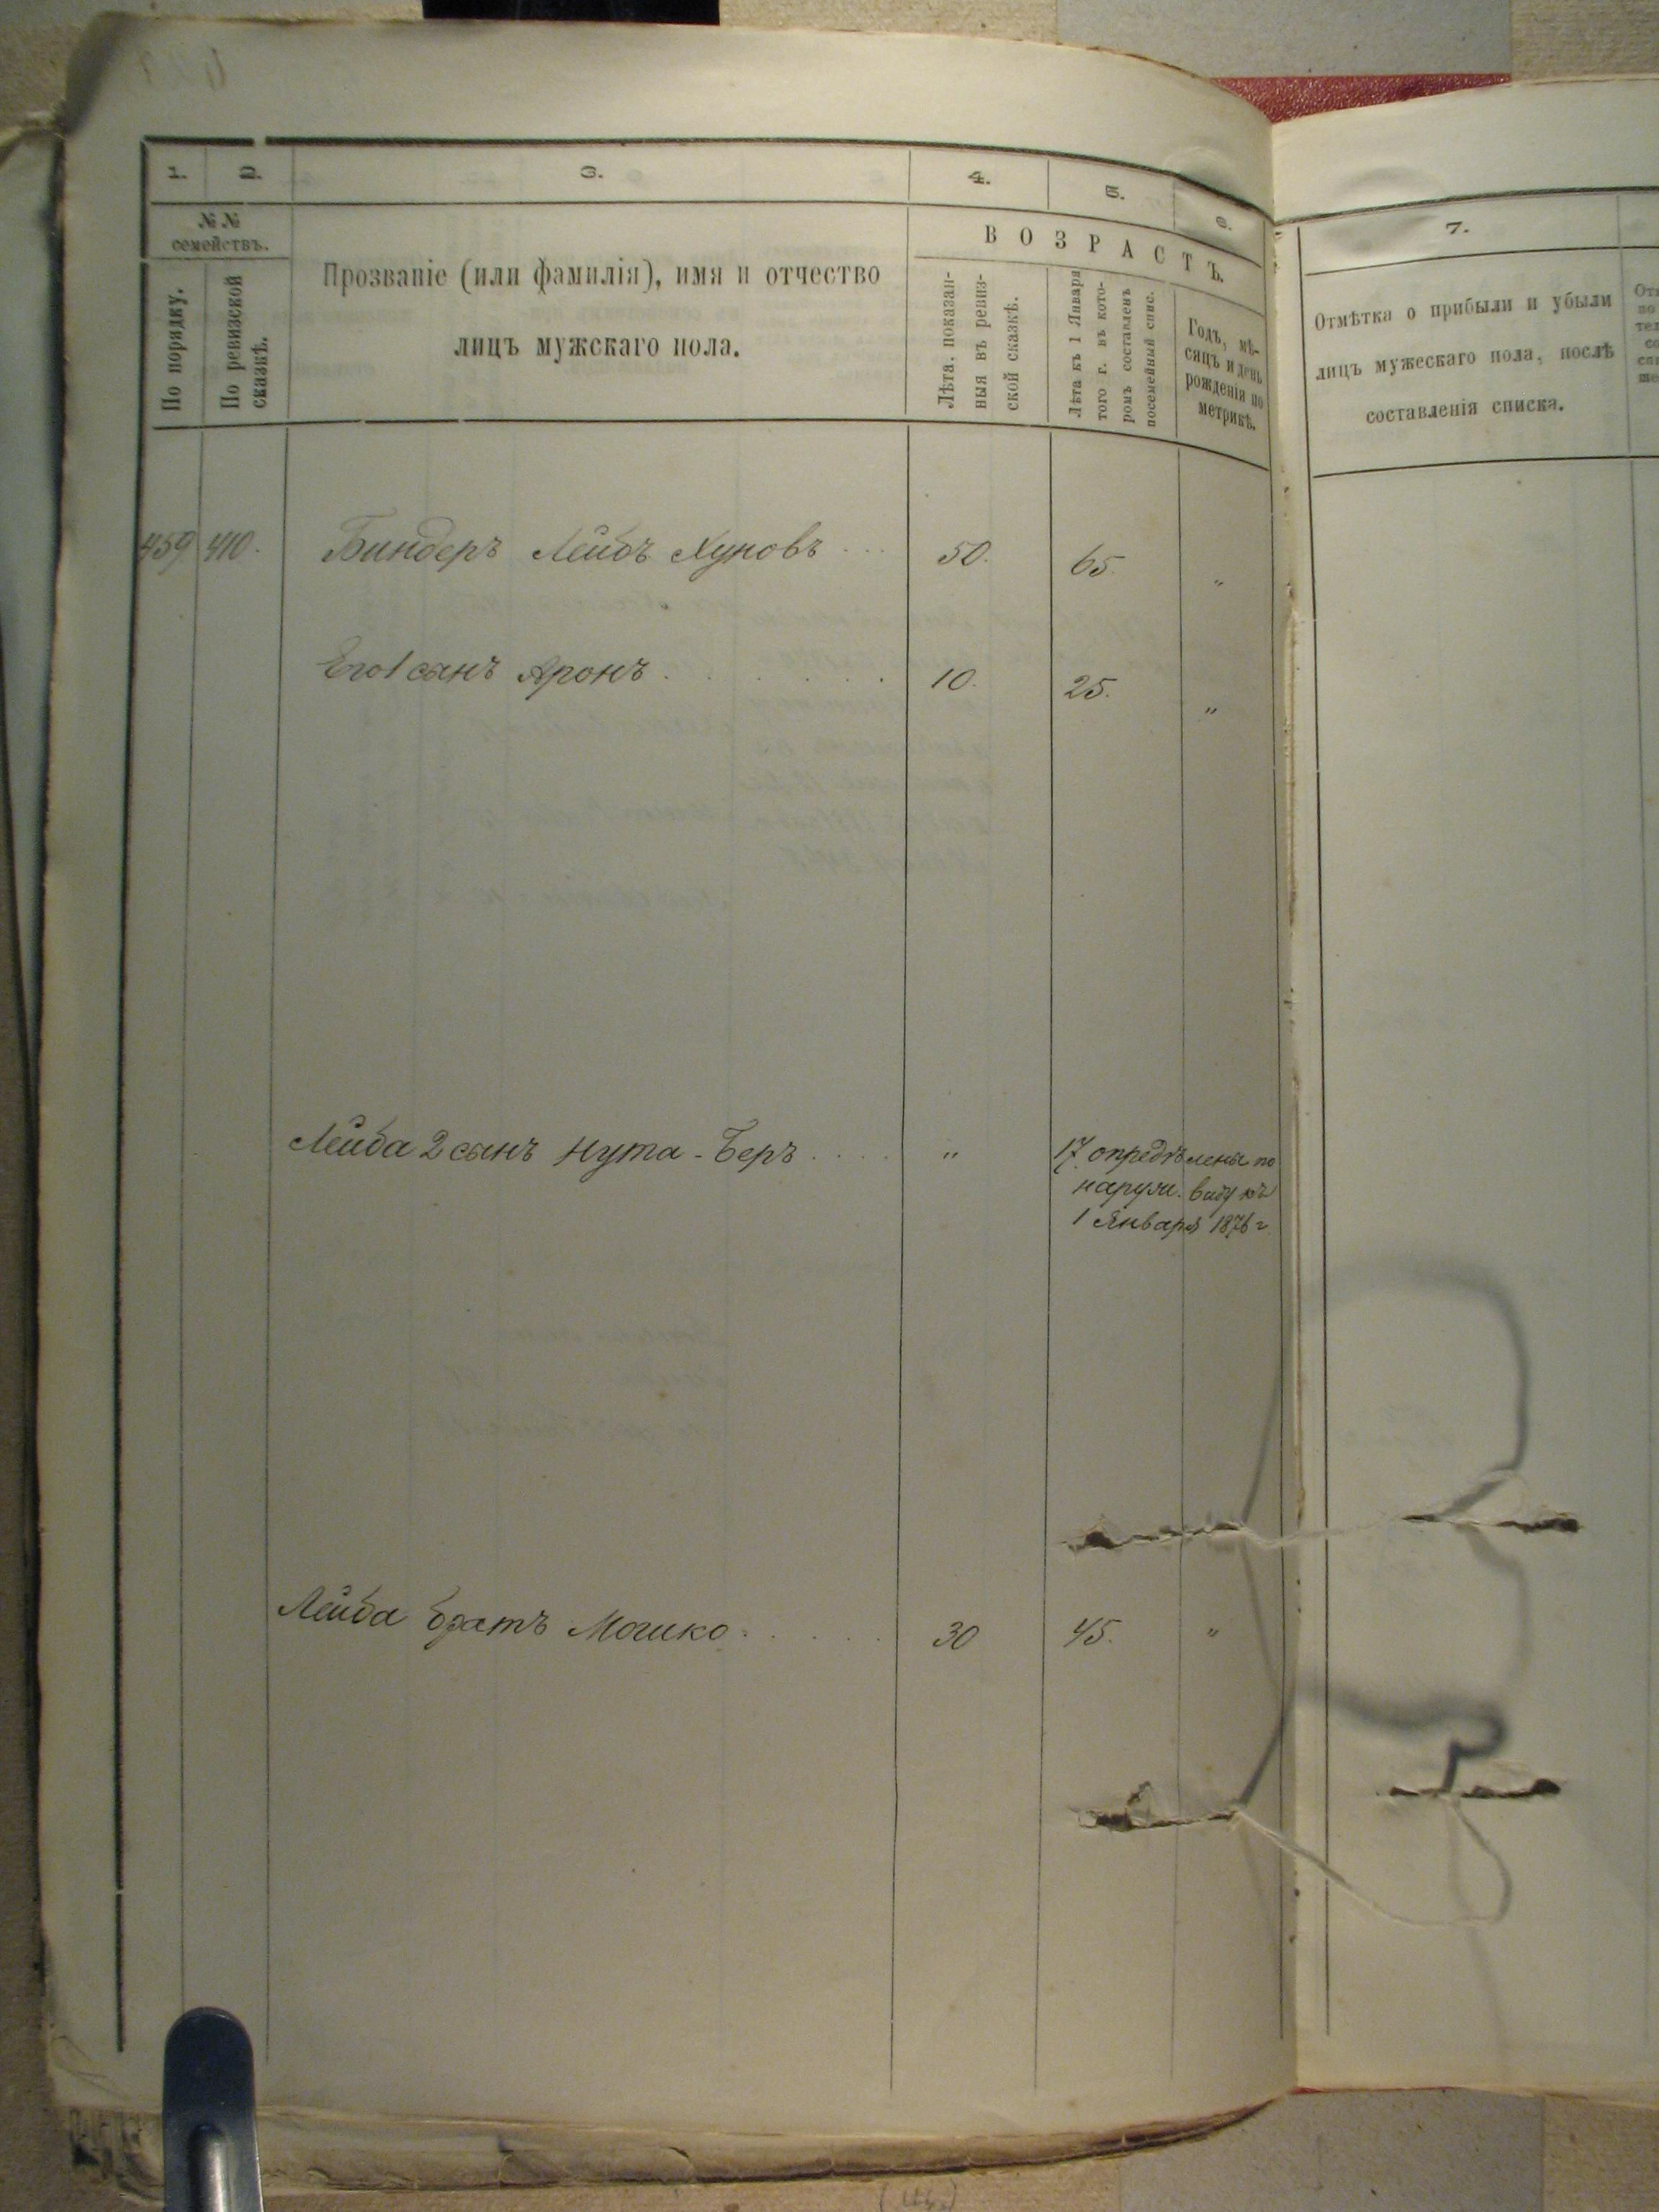 1. 2. 3. 4. 5. 6.
№ № семействъ.
По порядку.
По ревизской сказкѣ.
Прозваніе (или фамилія), имя и отчество
лицъ мужскаго пола.
ВОЗРАСТЪ.
Лѣта, показан-
ныя въ ревиз-
ской сказкѣ.
Лѣта къ 1 Января
того г. въ кото-
ромъ составленъ
посемейный спис.
Годъ, мѣ-
сяцъ и день
рожденія по
метрикѣ.
459. 410. Биндеръ Лейбъ Хуновъ ... 50. 65. "
Его 1 сынъ Аронъ . . . . . . . 10. 25. "
Лейба 2 сынъ Нута-Беръ . . . . " 17. опредѣлены по
наружн. виду къ
1 Января 1876 г.
Лейба братъ Мошко . . . . . 30 45. "
7.
Отмѣтка о прибыли и убыли
лицъ мужескаго пола, послѣ
составленія списка.